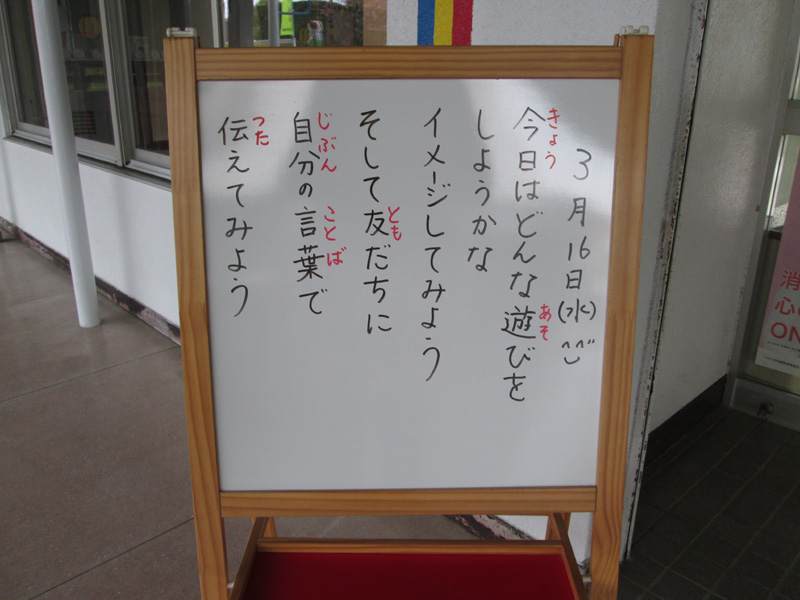 3月16日(水)
今日はどんな遊びを
きょう
あそ
しようかな
イメージしてみよう
そして友だちに
とも
自分の言葉で
じぶん
ことば
伝えてみよう
つた
消
心
ON